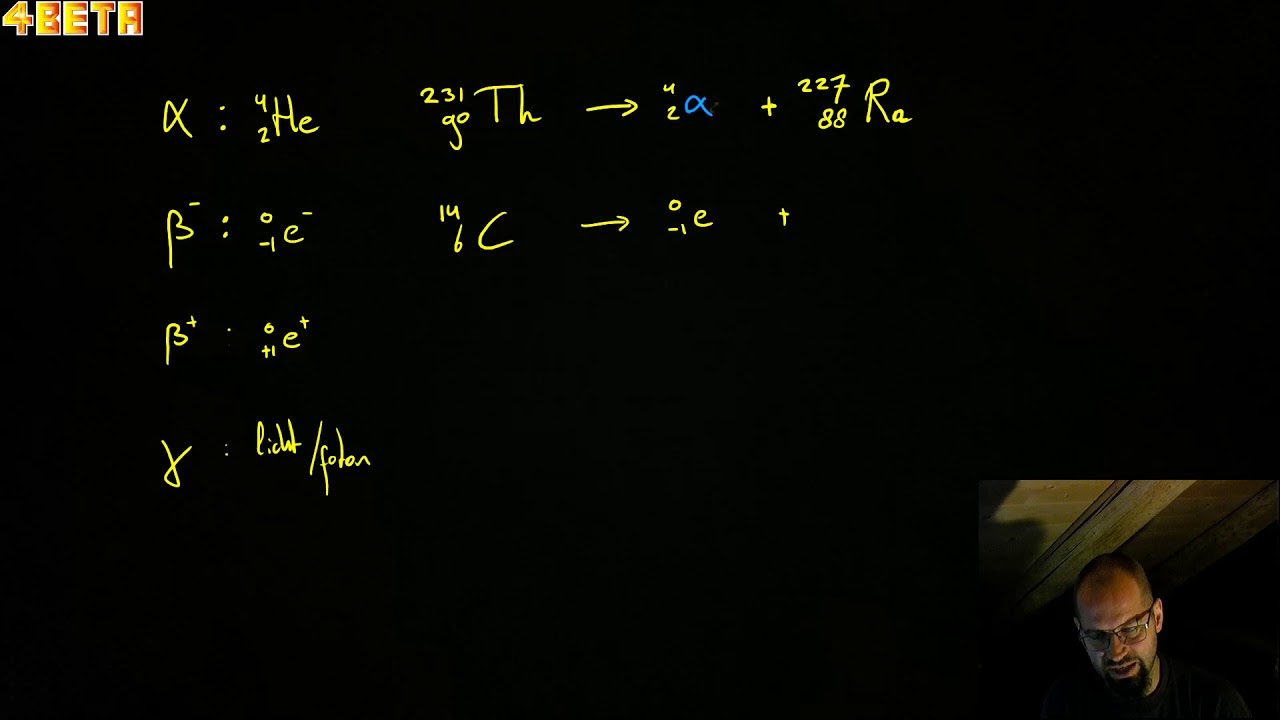 4BETA
α : ⁴₂He ²³¹₉₀Th → ⁴₂α + ²²⁷₈₈Ra
β⁻ : ⁰₋₁e⁻ ¹⁴₆C → ⁰₋₁e +
β⁺ : ⁰₊₁e⁺
γ : licht/foton